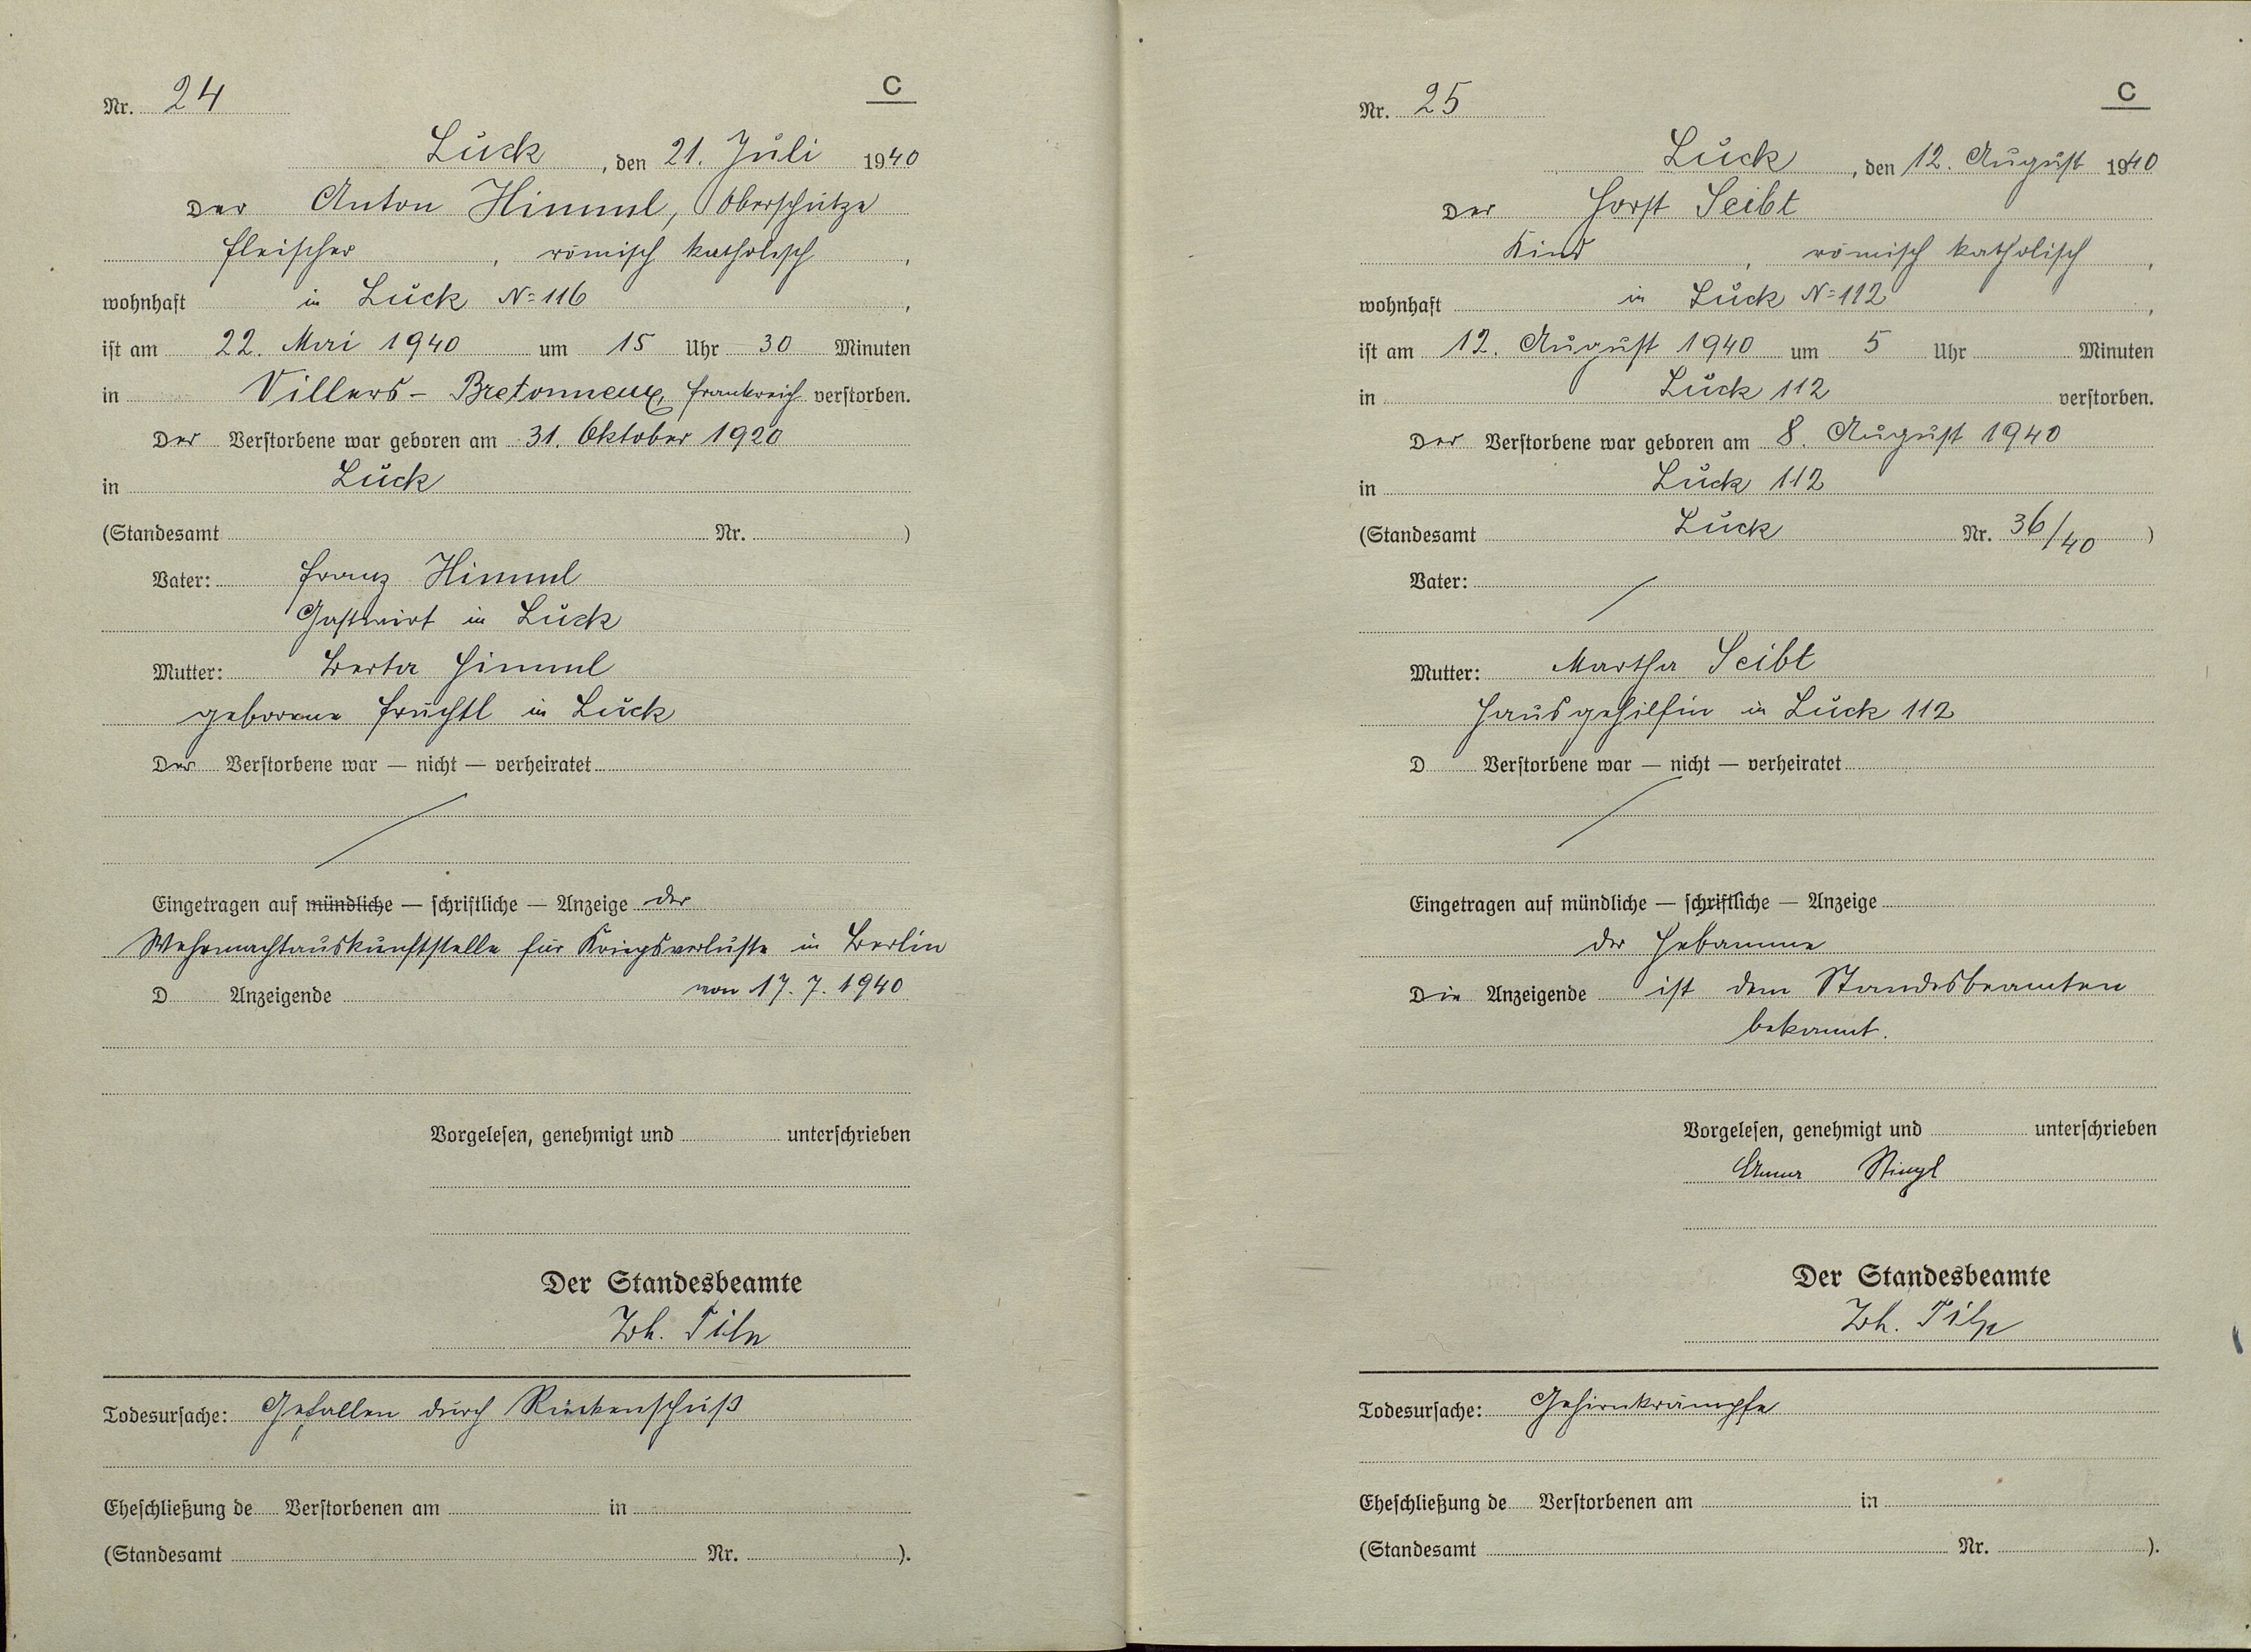 Nr. 24
C
Luck, den 21. Juli 1940
Der Anton Himml, Oberschütze
Fleischer, römisch katholisch,
wohnhaft in Luck No 116,
ist am 22. Mai 1940 um 15 Uhr 30 Minuten
in Villers-Bretonneux, Frankreich verstorben.
Der Verstorbene war geboren am 31. Oktober 1920
in Luck
(Standesamt Nr. )
Vater: Franz Himml
Gastwirt in Luck
Mutter: Berta Himml
geborene Früchtl in Luck
Der Verstorbene war — nicht — verheiratet
Eingetragen auf mündliche — schriftliche — Anzeige der
Wehrmachtauskunftstelle für Kriegsverluste in Berlin
D Anzeigende von 17. 7. 1940
Vorgelesen, genehmigt und unterschrieben
Der Standesbeamte
Joh. Tilp
Todesursache: Gefallen durch Rückenschuß
Eheschließung de Verstorbenen am in
(Standesamt Nr. ).
Nr. 25
C
Luck, den 12. August 1940
Der Horst Seibt
Kind, römisch katholisch,
wohnhaft in Luck No 112,
ist am 12. August 1940 um 5 Uhr Minuten
in Luck 112 verstorben.
Der Verstorbene war geboren am 8. August 1940
in Luck 112
(Standesamt Luck Nr. 36/40 )
Vater:
Mutter: Martha Seibt
Hausgehilfin in Luck 112
D Verstorbene war — nicht — verheiratet
Eingetragen auf mündliche — schriftliche — Anzeige
der Hebamme
Die Anzeigende ist dem Standesbeamten
bekannt.
Vorgelesen, genehmigt und unterschrieben
Anna Stingl
Der Standesbeamte
Joh. Tilp
Todesursache: Gehirnkrämpfe
Eheschließung de Verstorbenen am in
(Standesamt Nr. ).